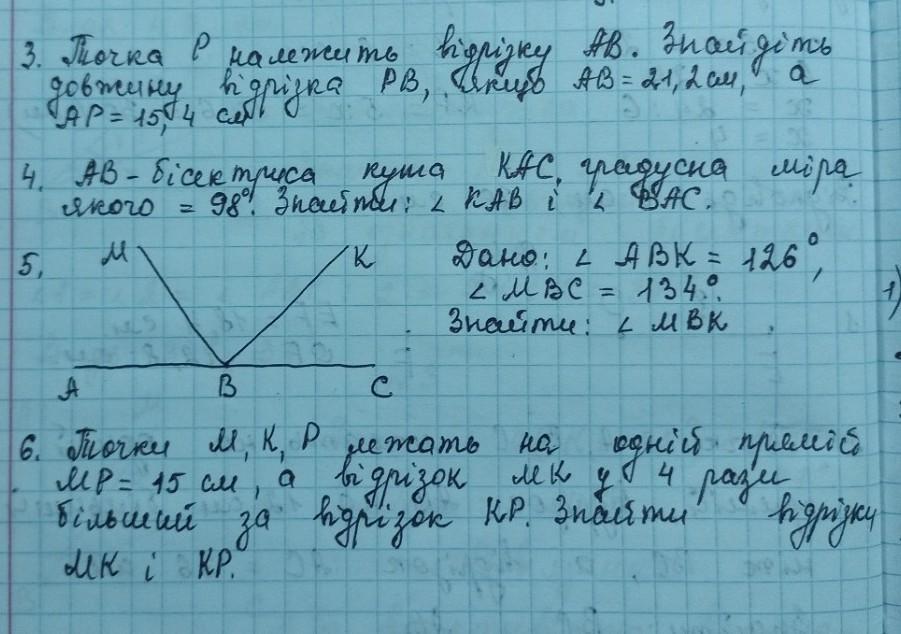 3. Точка P належить відрізку AB. Знайдіть
довжину відрізка PB, якщо AB = 21,2 см, а
AP = 15,4 см
4. AB - бісектриса кута KAC, градусна міра
якого = 98°. Знайти: ∠ KAB і ∠ BAC.
5, M K Дано: ∠ ABK = 126°,
∠ MBC = 134°. 1)
Знайти: ∠ MBK
A B C
6. Точки M, K, P лежать на одній прямій
MP = 15 см, а відрізок MK у 4 рази
більший за відрізок KP. Знайти відрізки
MK і KP.